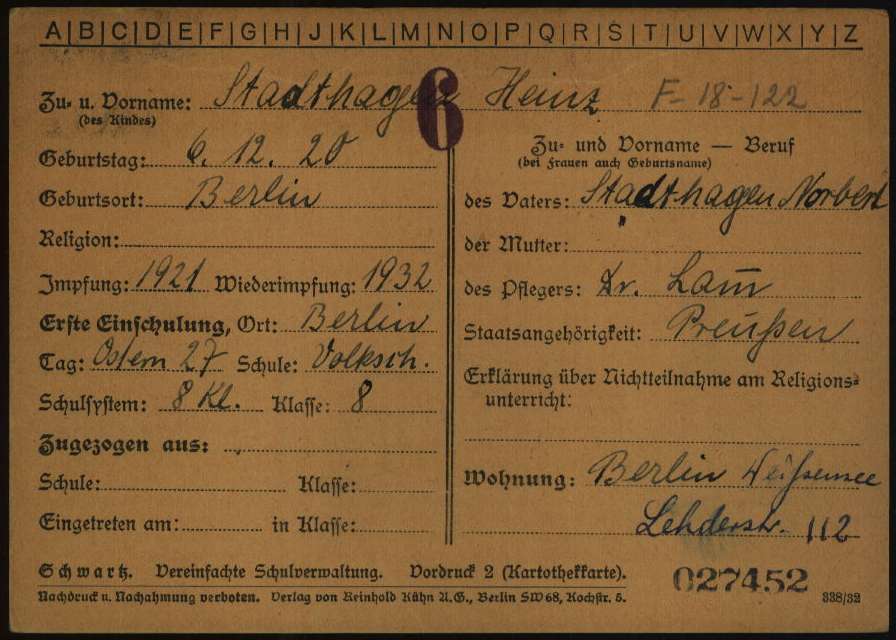 A|B|C|D|E|F|G|H|J|K|L|M|N|O|P|Q|R|S|T|U|V|W|X|Y|Z
Zu- u. Vorname: Stadthagen Heinz F-18-122
(des Kindes)
6
Geburtstag: 6. 12. 20
Geburtsort: Berlin
Religion:
Impfung: 1921 Wiederimpfung: 1932
Erste Einschulung, Ort: Berlin
Tag: Ostern 27 Schule: Volksch.
Schulsystem: 8 Kl. Klasse: 8
Zugezogen aus:
Schule: Klasse:
Eingetreten am: in Klasse:
Zu- und Vorname — Beruf
(bei Frauen auch Geburtsname)
des Vaters: Stadthagen Norbert
der Mutter:
des Pflegers: Dr. Lam̅
Staatsangehörigkeit: Preußen
Erklärung über Nichtteilnahme am Religions-
unterricht:
Wohnung: Berlin Weißensee
Lehderstr. 112
Schwartz. Vereinfachte Schulverwaltung. Vordruck 2 (Kartothekkarte).
027452
Nachdruck u. Nachahmung verboten. Verlag von Reinhold Kühn A.G., Berlin SW 68, Kochstr. 5. 338/32